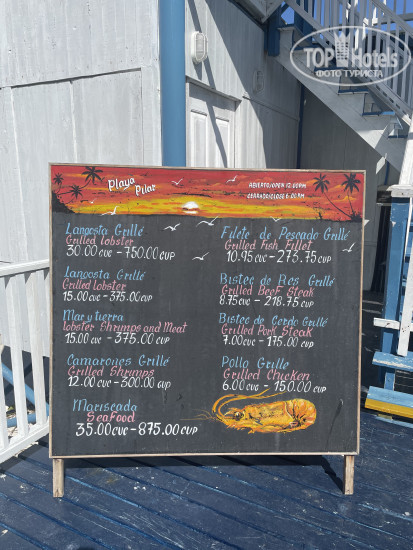 TOP Hotels
ФОТО ТУРИСТА
Playa
Pilar
ABIERTO/OPEN 12:00 PM
CERRADO/CLOSE 6:00 PM
Langosta Grillé
Grilled lobster
30.00 CUC - 750.00 CUP
Langosta Grillé
Grilled lobster
15.00 CUC - 375.00 CUP
Mar y tierra
lobster Shrimps and Meat
15.00 CUC - 375.00 CUP
Camarones Grillé
Grilled Shrimps
12.00 CUC - 300.00 CUP
Mariscada
Seafood
35.00 CUC - 875.00 CUP
Filete de Pescado Grillé
Grilled Fish Fillet
10.95 CUC - 273.75 CUP
Bistec de Res Grillé
Grilled Beef Steak
8.75 CUC - 218.75 CUP
Bistec de Cerdo Grillé
Grilled Pork Steak
7.00 CUC - 175.00 CUP
Pollo Grille
Grilled Chicken
6.00 CUC - 150.00 CUP